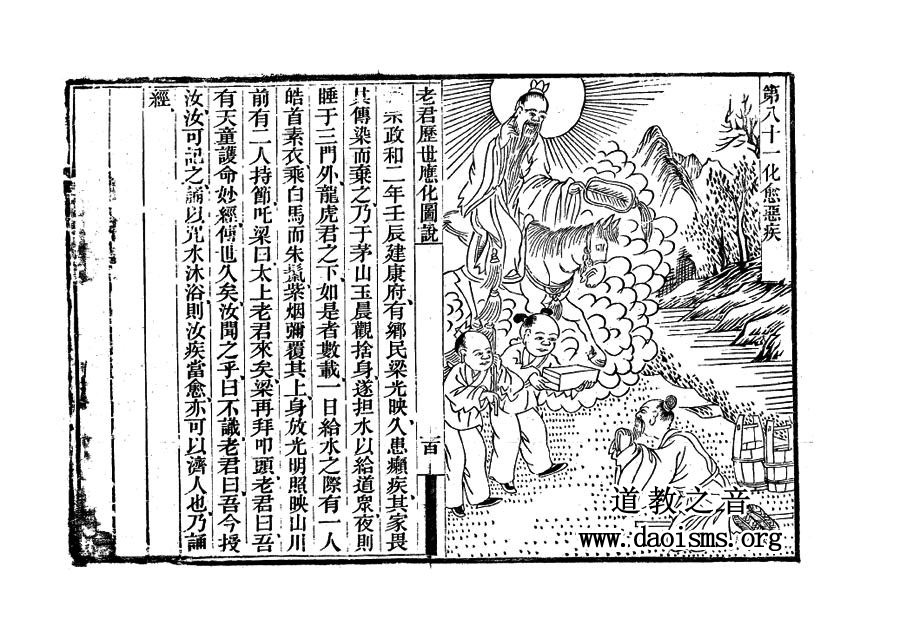 第八十一化愈惡疾
老君歷世應化圖說
宗政和二年壬辰建康府有鄉民梁光映久患癩疾其家畏
其傳染而棄之乃于茅山玉晨觀捨身遂担水以給道眾夜則
睡于三門外龍虎君之下如是者數載一日給水之際有一人
皓首素衣乘白馬而朱鬣紫烟彌覆其上身放光明照映山川
前有二人持節吒梁曰太上老君來矣梁再拜叩頭老君曰吾
有天童護命妙經傳世久矣汝聞之乎曰不識老君曰吾今授
汝汝可記之誦以咒水沐浴則汝疾當愈亦可以濟人也乃誦
經
一百
道教之音
www.daoisms.org